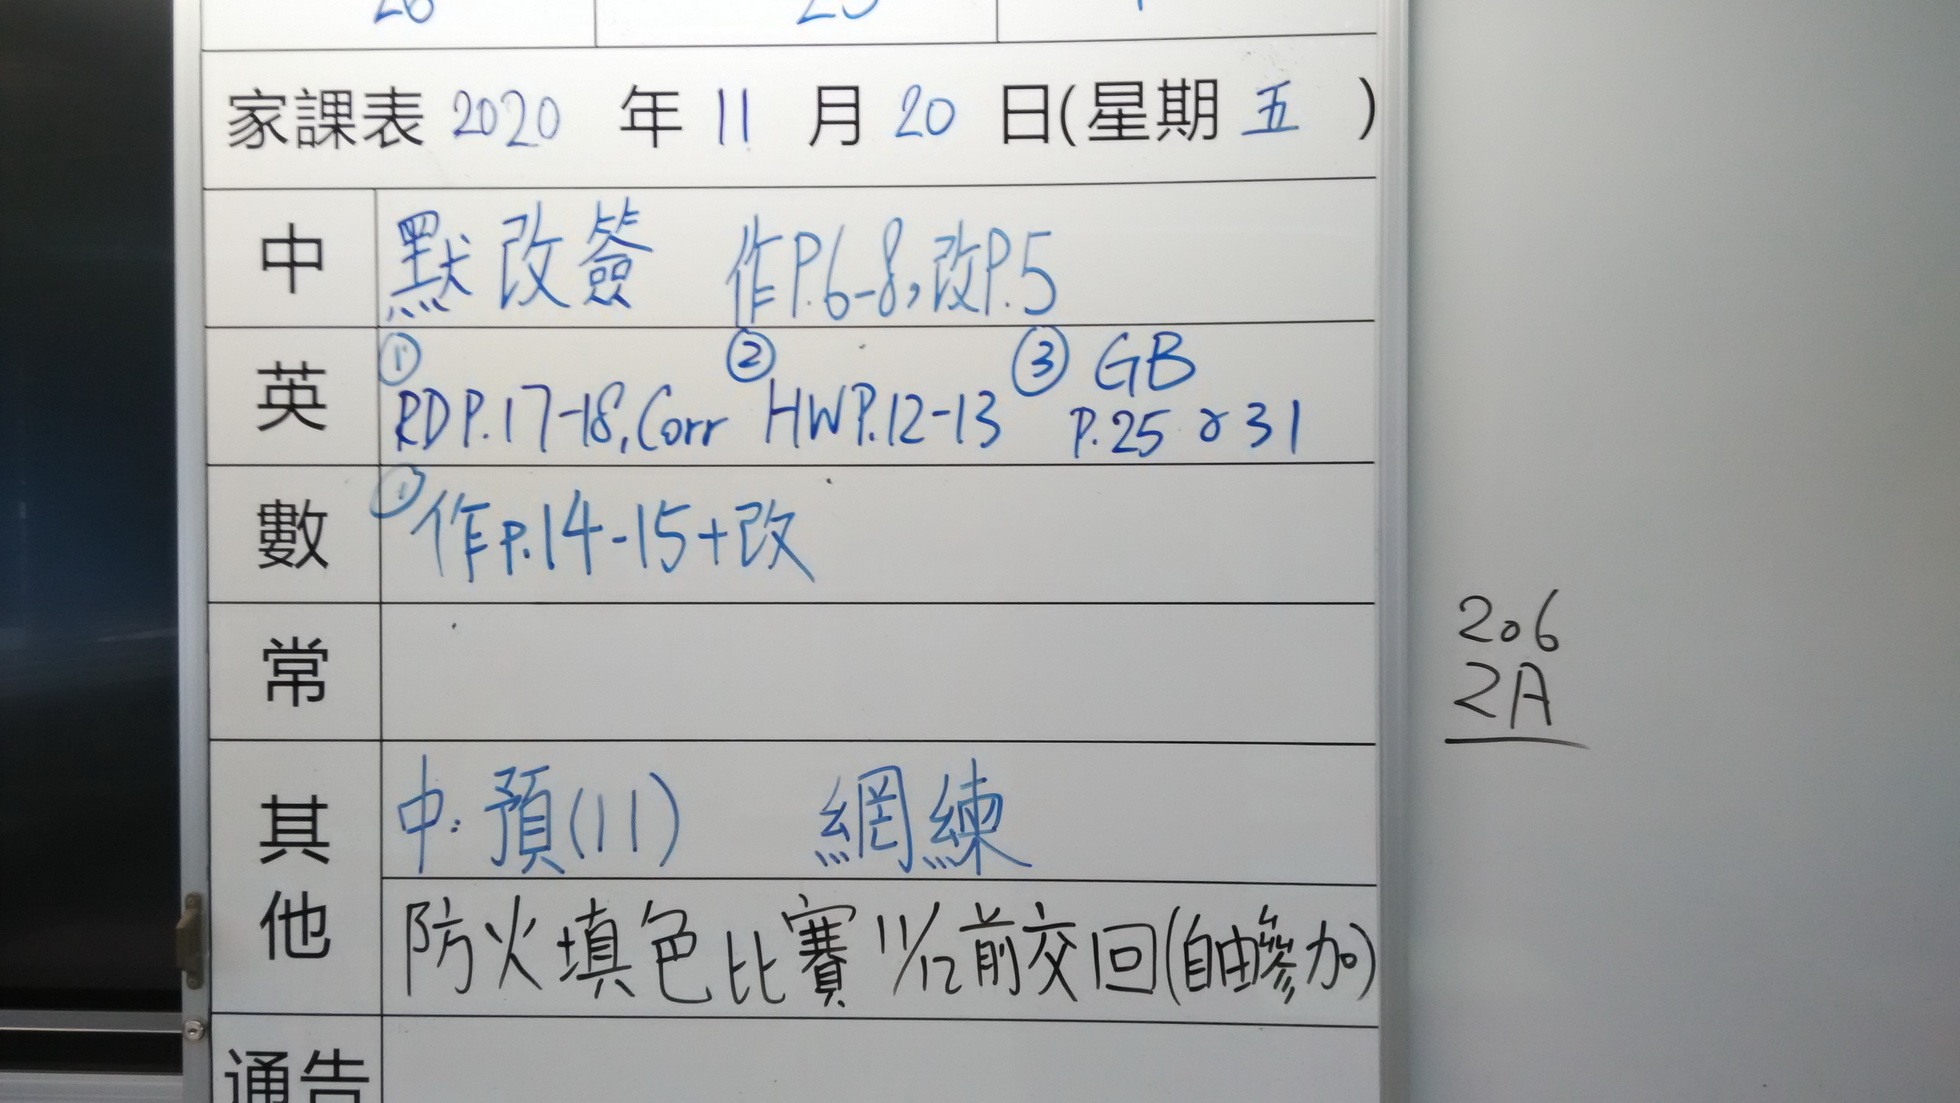 家課表 2020 年 11 月 20 日(星期 五 )
中 默改簽 作P.6-8,改P.5
英 ① RD P.17-18,Corr ② HW P.12-13 ③ GB P.25 & 31
數 ① 作P.14-15+改
常
其他 中:預(11) 網練
防火填色比賽 11/12前交回(自由參加)
通告
206
2A